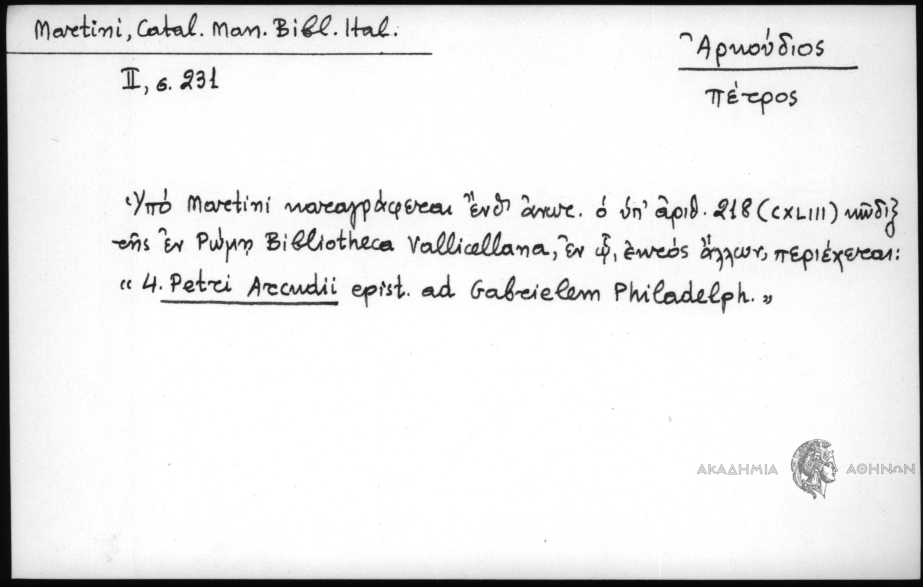 Martini, Catal. Man. Bibl. Ital.
II, σ. 231
Ἀρκούδιος
Πέτρος
Ὑπό Martini καταγράφεται ἔνθ' ἀνωτ. ὁ ὑπ' ἀριθ. 218 (CXLIII) κῶδιξ
τῆς ἐν Ρώμῃ Bibliotheca Vallicellana, ἐν ᾧ, ἐκτός ἄλλων, περιέχεται:
« 4. Petri Arcudii epist. ad Gabrielem Philadelph. »
ΑΚΑΔΗΜΙΑ ΑΘΗΝΩΝ